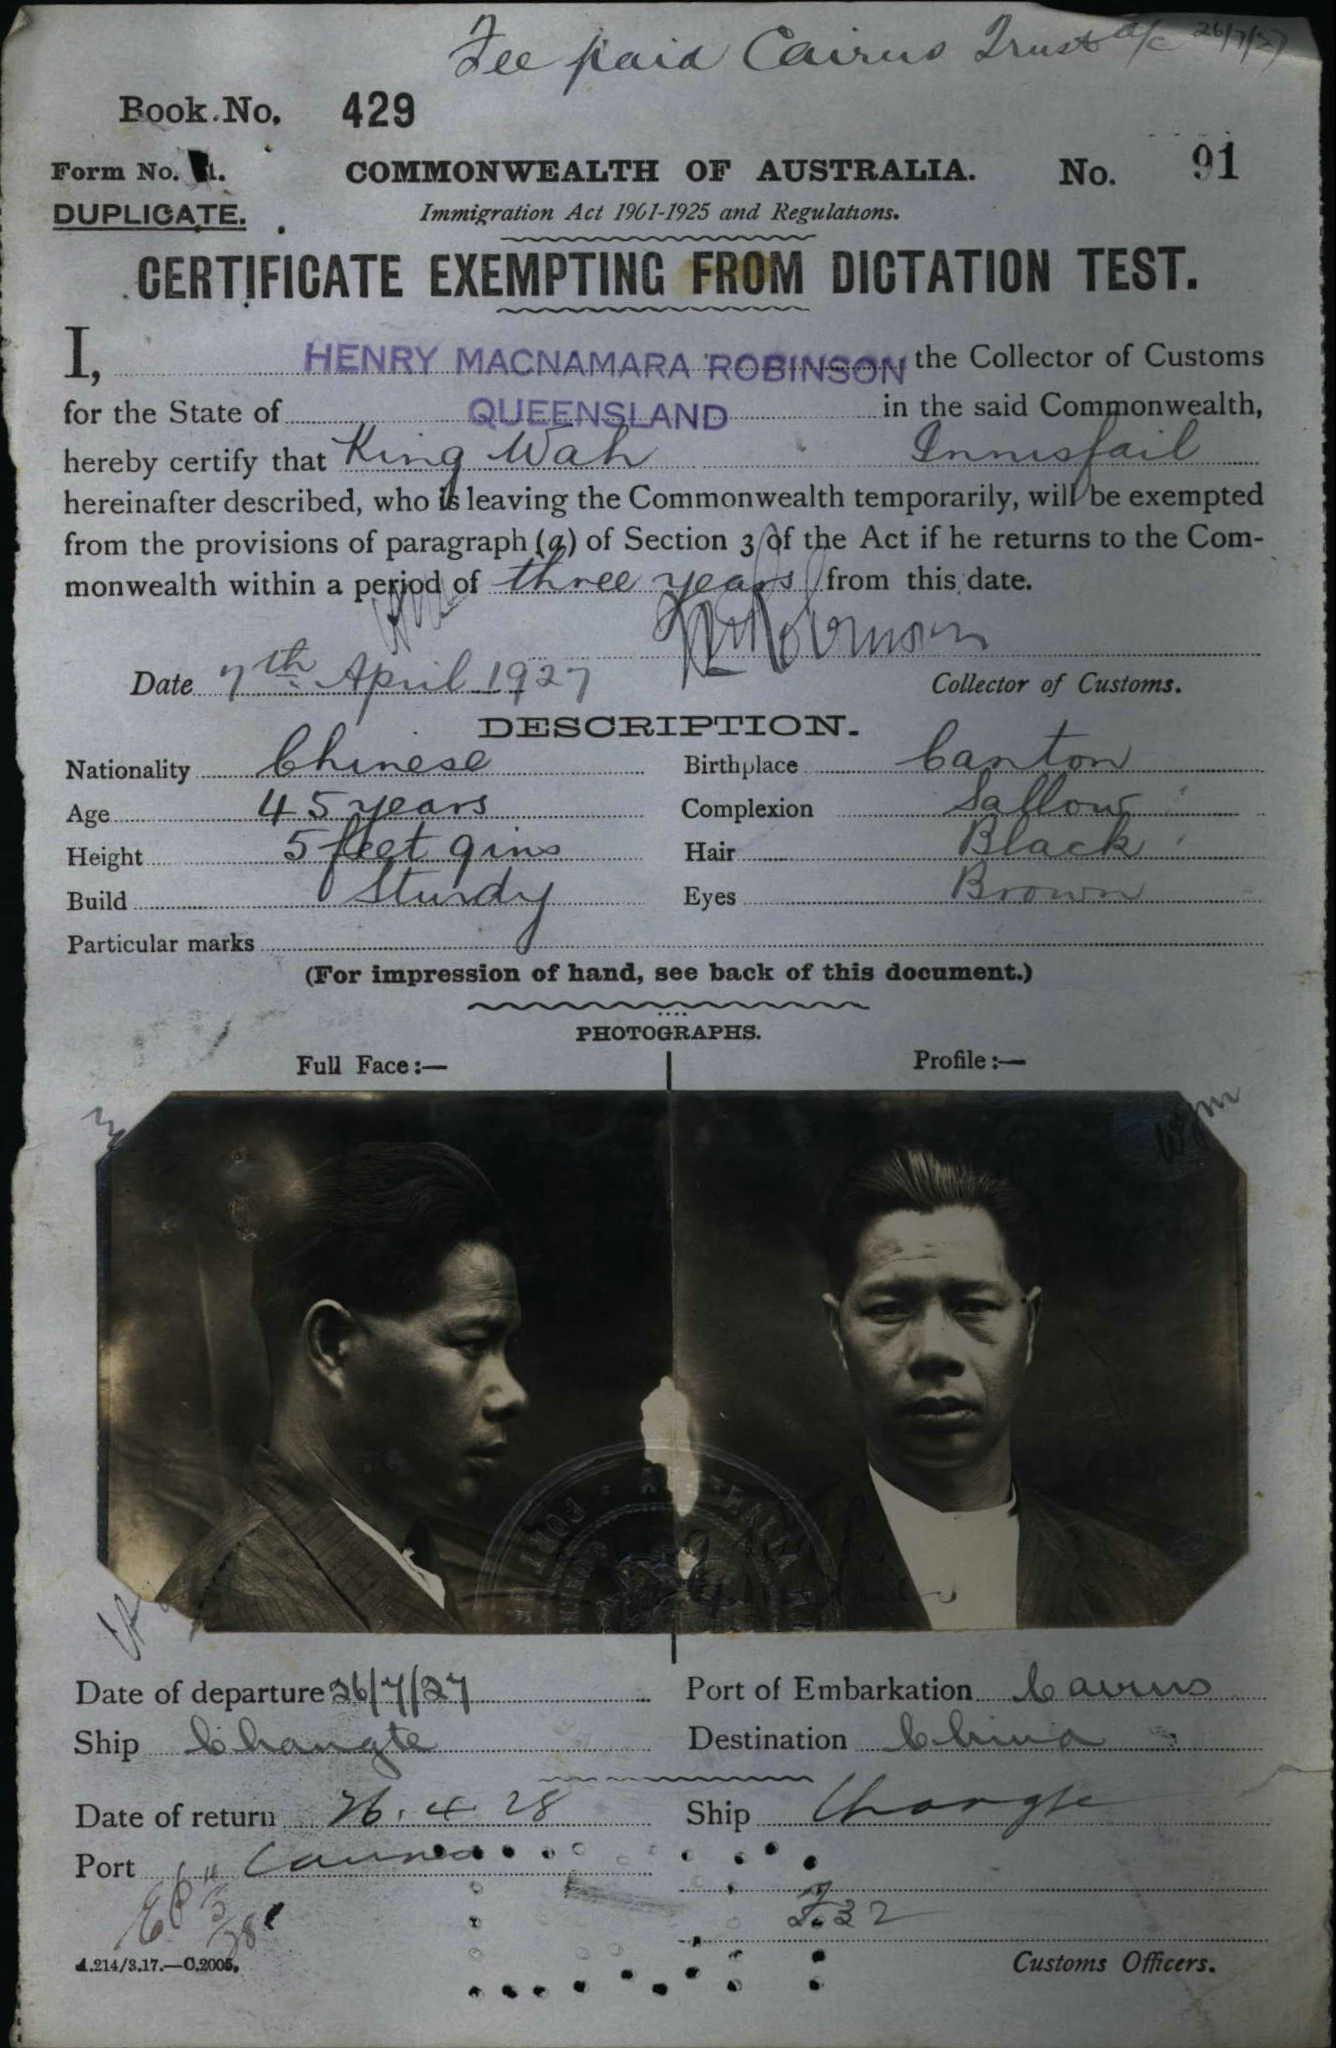 Fee paid Cairns Trust a/c 26/7/27
Book No. 429
Form No. 21.
COMMONWEALTH OF AUSTRALIA.
No. 91
DUPLICATE.
Immigration Act 1901-1925 and Regulations.
CERTIFICATE EXEMPTING FROM DICTATION TEST.
I, HENRY MACNAMARA ROBINSON the Collector of Customs
for the State of QUEENSLAND in the said Commonwealth,
hereby certify that King Wah Innisfail
hereinafter described, who is leaving the Commonwealth temporarily, will be exempted
from the provisions of paragraph (a) of Section 3 of the Act if he returns to the Com-
monwealth within a period of three years from this date.
HM Robinson
Date 7th April 1927 Collector of Customs.
DESCRIPTION.
Nationality Chinese Birthplace Canton
Age 45 years Complexion Sallow
Height 5 feet 9 ins Hair Black
Build Sturdy Eyes Brown
Particular marks
(For impression of hand, see back of this document.)
PHOTOGRAPHS.
Full Face:— Profile:—
Date of departure 26/7/27 Port of Embarkation Cairns
Ship Changte Destination China
Date of return 26.4.28 Ship Changte
Port Cairns
F.32
A.214/3.17.—C.2005. Customs Officers.